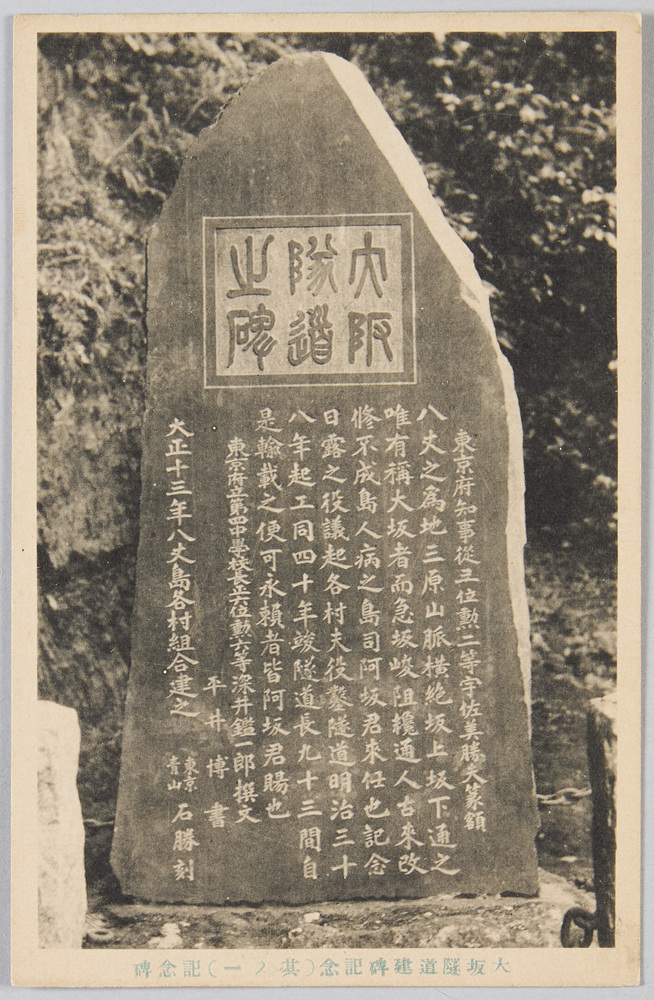 大阪
隧道
之碑
東京府知事從三位勲二等宇佐美勝夫篆額
八丈之為地三原山脈横絶坂上坂下通之
唯有稱大坂者而急坂峻阻纔通人古來改
修不成島人病之島司阿坂君來任也記念
日露之役議起各村夫役鑿隧道明治三十
八年起工同四十年竣隧道長九十三間自
是輸載之便可永頼者皆阿坂君賜也
東京府立第四中學校長正六位勲六等深井鑑一郎撰文
平井博書
大正十三年八丈島各村組合建之
東京
青山
石勝刻
大坂隧道建碑記念(其ノ一)記念碑